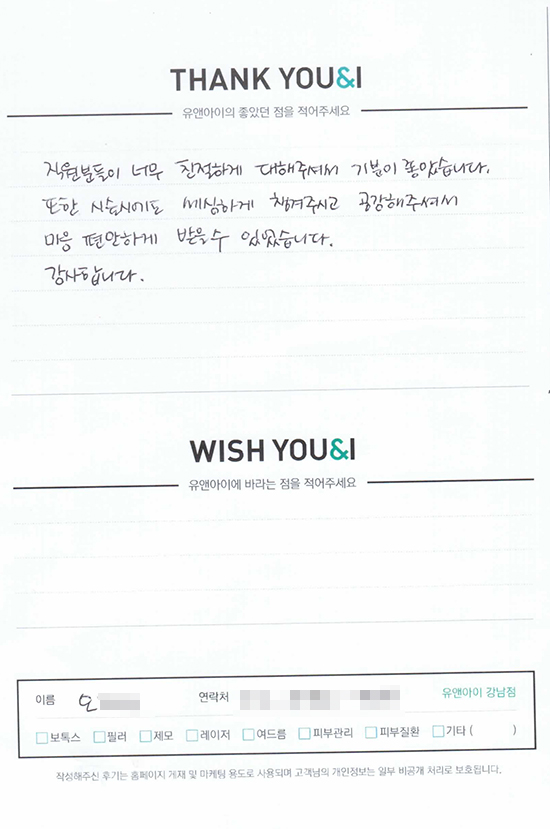 THANK YOU&I
유앤아이의 좋았던 점을 적어주세요
직원분들이 너무 친절하게 대해주셔서 기분이 좋았습니다.
또한 시술시에도 세심하게 챙겨주시고 공감해주셔서
마음 편안하게 받을수 있었습니다.
감사합니다.
WISH YOU&I
유앤아이에 바라는 점을 적어주세요
이름 오 연락처 유앤아이 강남점
보톡스 필러 제모 레이저 여드름 피부관리 피부질환 기타 ( )
작성해주신 후기는 홈페이지 게재 및 마케팅 용도로 사용되며 고객님의 개인정보는 일부 비공개 처리로 보호됩니다.